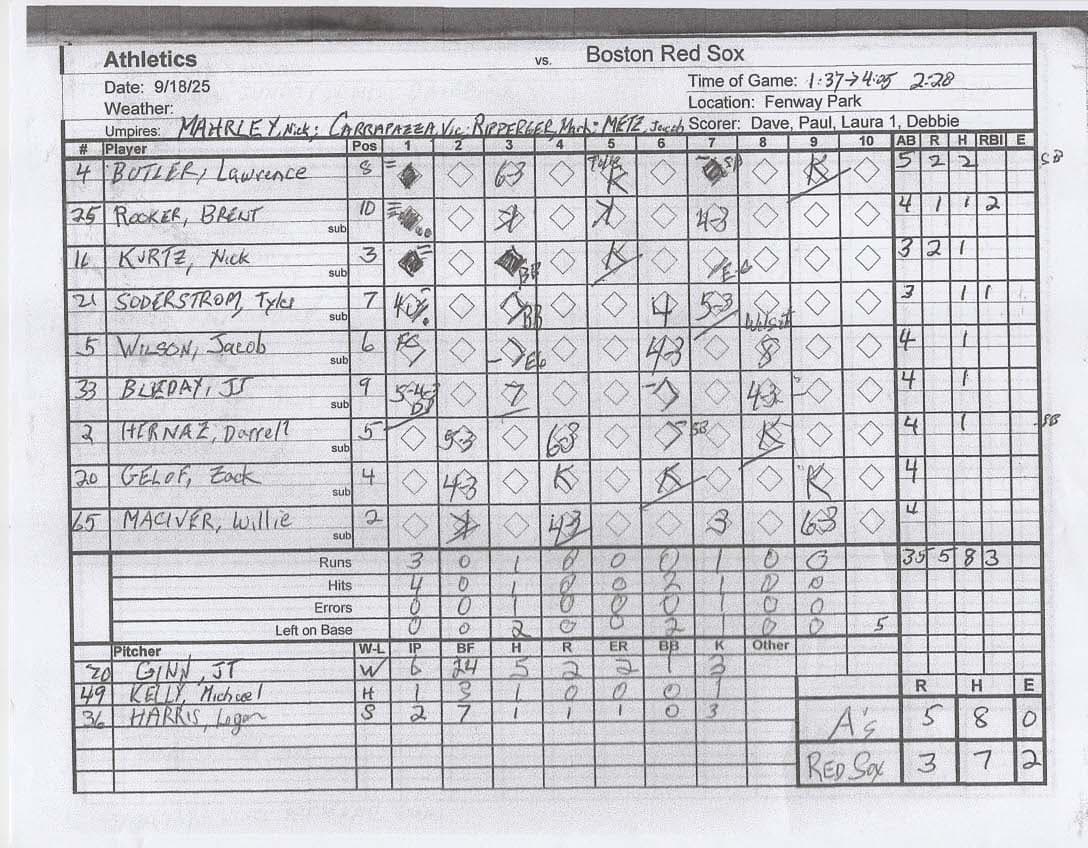 Athletics vs. Boston Red Sox
Date: 9/18/25 Time of Game: 1:37→4:05 2:28
Weather: Location: Fenway Park
Umpires: MAHRLEY, Nick; CARRAPAZZA, Vic; RIPPERGER, Mark; METZ, Jacob Scorer: Dave, Paul, Laura 1, Debbie
# Player Pos 1 2 3 4 5 6 7 8 9 10 AB R H RBI E
4 BUTLER, Lawrence 8 63 K SB K 5 2 2 SB
25 ROOKER, BRENT 10 43 4 1 1 2
sub
16 KURTZ, Nick 3 BB K E-6 3 2 1
sub
21 SODERSTROM, Tyler 7 BB 4 5-3 3 1 1
sub
5 WILSON, Jacob 6 FC E6 43 8 4 1
sub
33 BLEDAY, JJ 9 5-4-3 DP 7 43 4 1
sub
2 HERNAZ, Darrell 5 53 63 SB K 4 1 SB
sub
20 GELOF, Zack 4 43 K K K 4
sub
65 MACIVER, Willie 2 43 3 63 4
sub
Runs 3 0 1 0 0 0 1 0 0 35 5 8 3
Hits 4 0 1 0 0 2 1 0 0
Errors 0 0 1 0 0 0 1 0 0
Left on Base 0 0 2 0 0 2 1 0 0 5
Pitcher W-L IP BF H R ER BB K Other
20 GINN, JT W 6 24 5 2 2 1 3
49 KELLY, Michael H 1 3 1 0 0 0 1
36 HARRIS, Logan S 2 7 1 1 1 0 3
R H E
A's 5 8 0
RED SOX 3 7 2